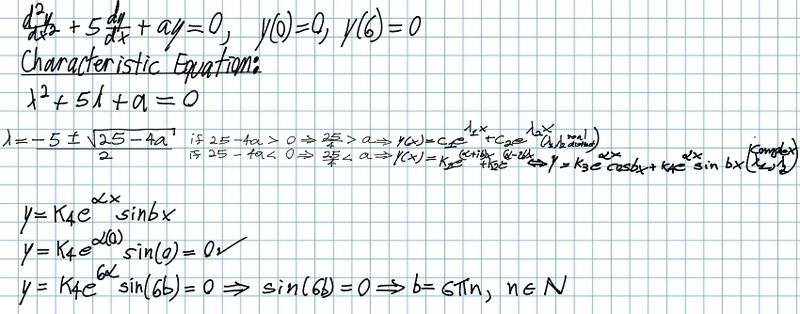 d²y/dx² + 5 dy/dx + ay = 0, y(0)=0, y(6)=0
Characteristic Equation:
λ² + 5λ + a = 0
λ = (-5 ± √(25-4a))/2 if 25-4a > 0 ⇒ 25/4 > a ⇒ y(x) = c₁e^(λ₁x) + c₂e^(λ₂x) (λ₁,λ₂ real distinct)
if 25-4a < 0 ⇒ 25/4 < a ⇒ y(x) = K₁e^((α+ib)x) + K₂e^((α-ib)x) ⇔ y = K₃e^(αx) cosbx + K₄e^(αx) sin bx (complex λ₁,λ₂)
y = K₄e^(αx) sinbx
y = K₄e^(α(0)) sin(0) = 0 ✓
y = K₄e^(6α) sin(6b) = 0 ⇒ sin(6b) = 0 ⇒ b = 6πn, n ∈ N